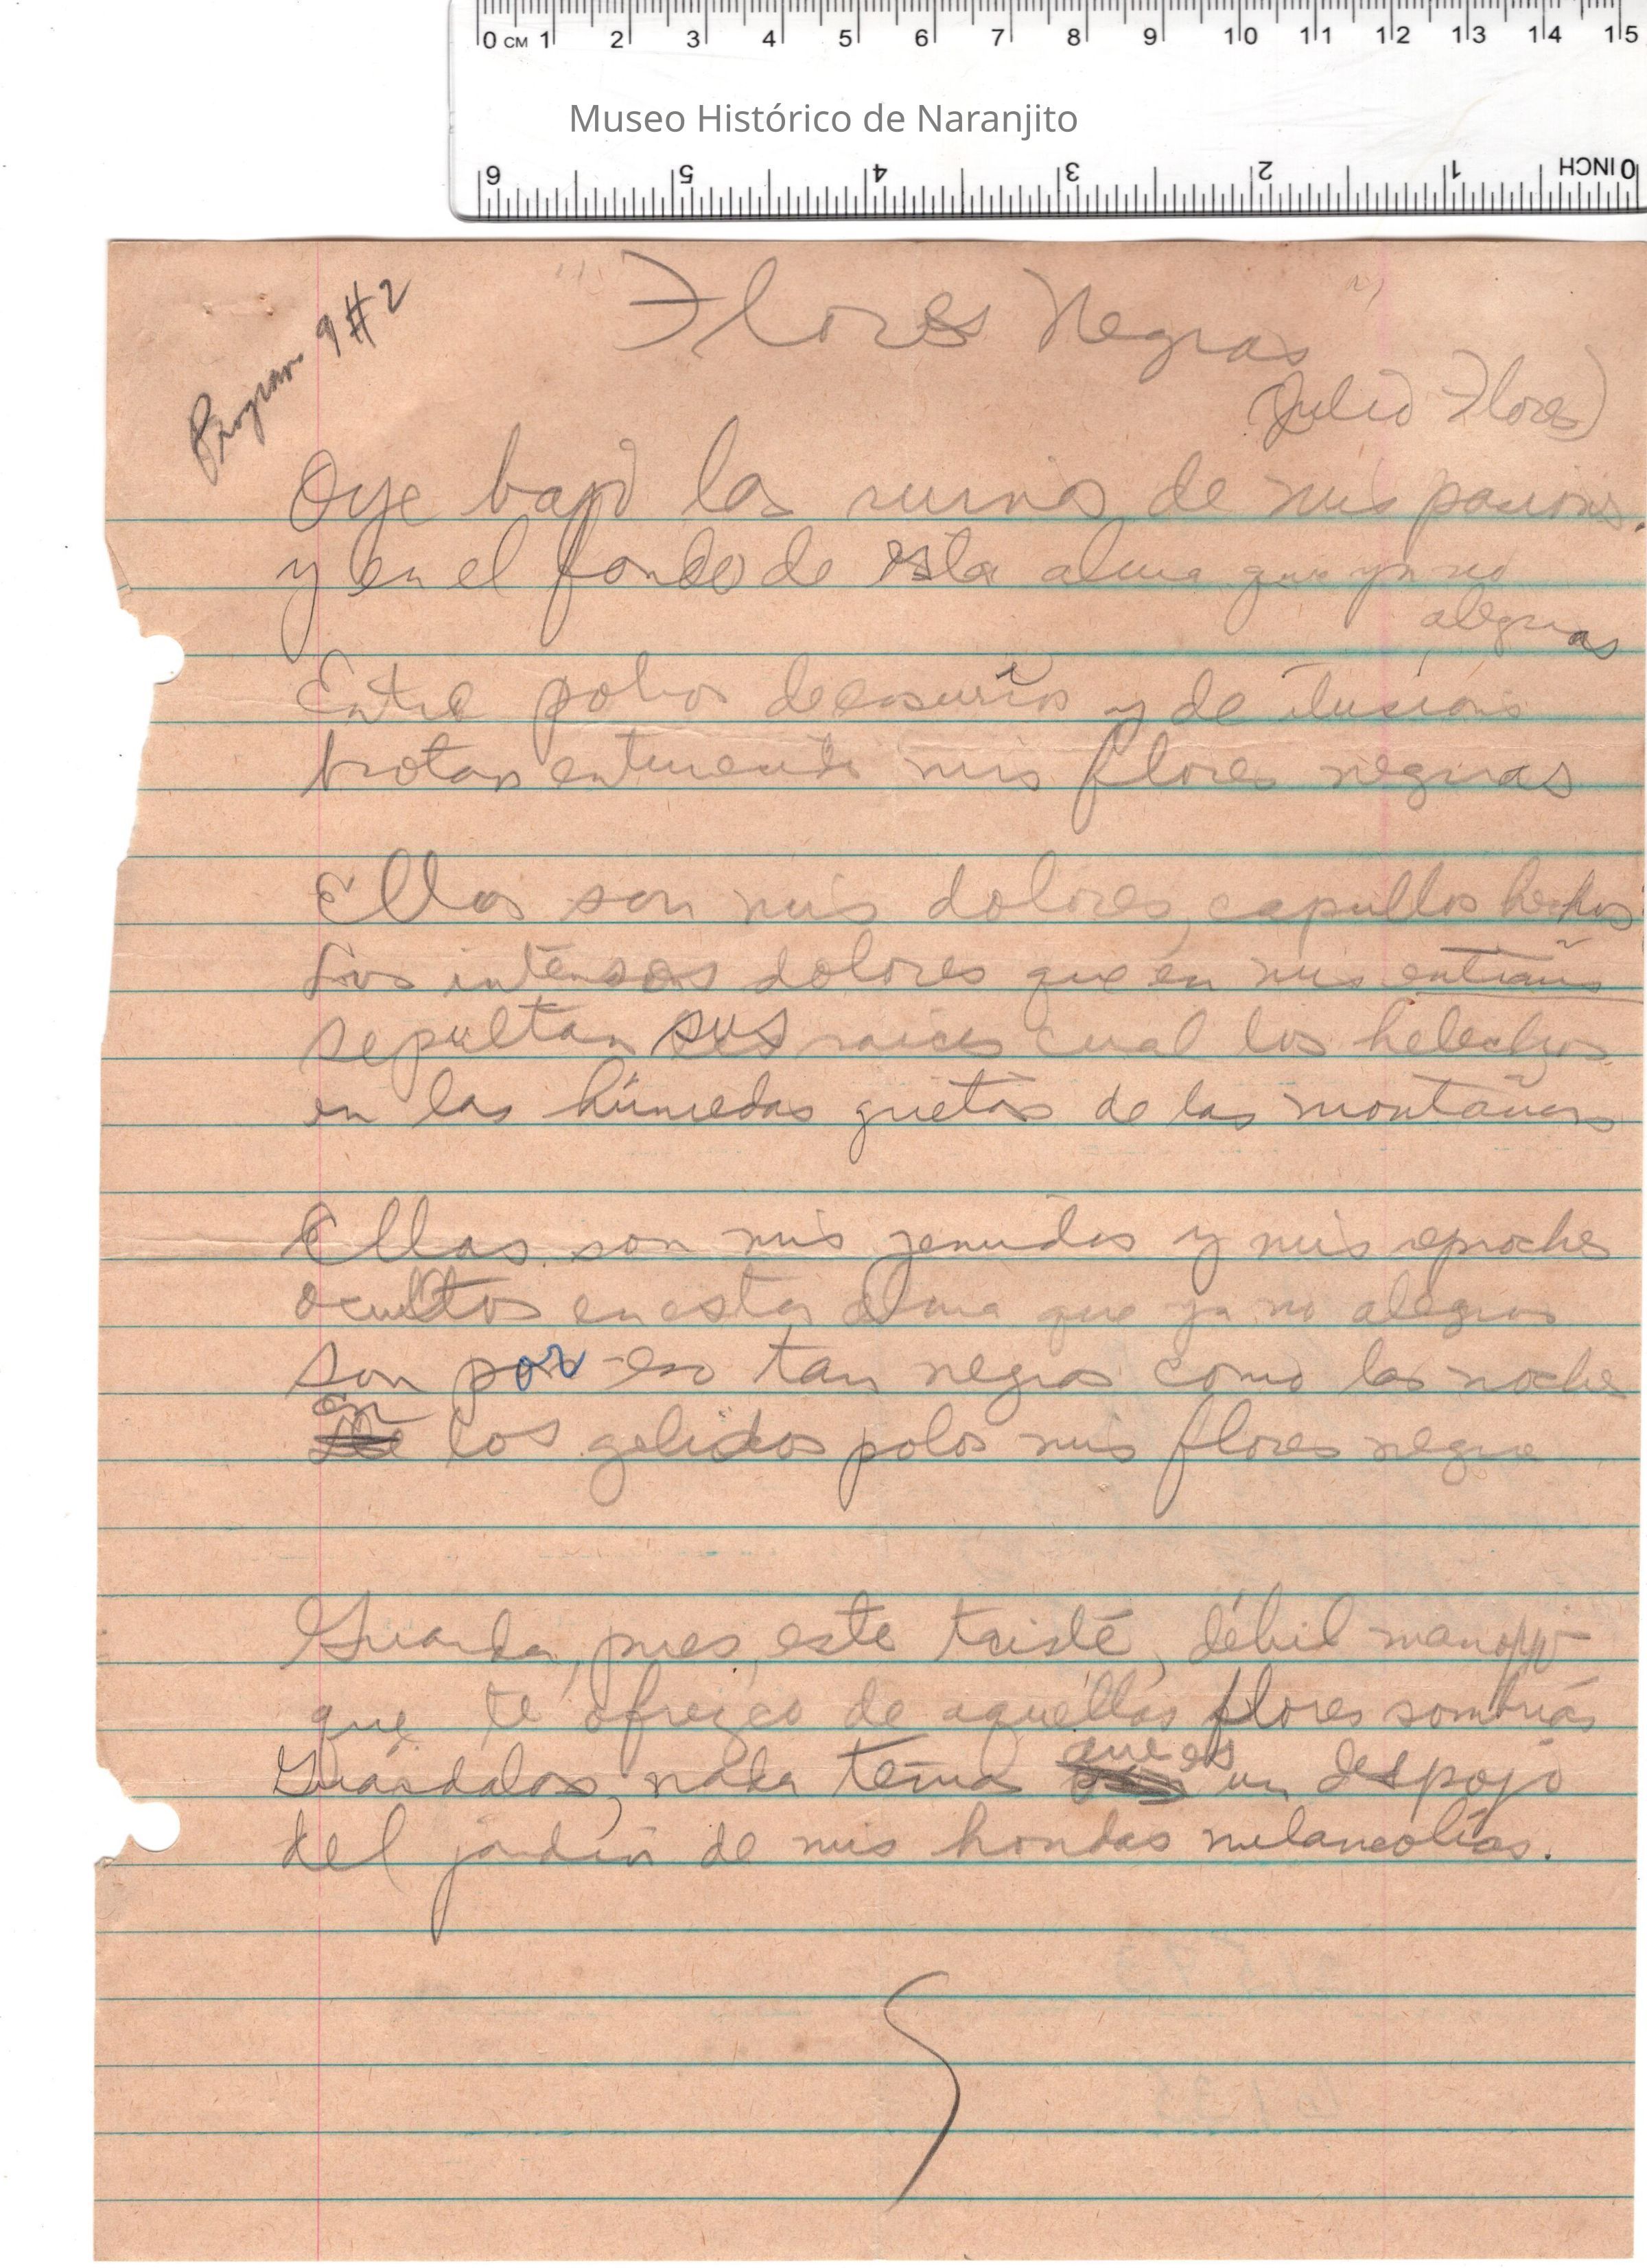 0 CM 1 2 3 4 5 6 7 8 9 10 11 12 13 14 15
Museo Histórico de Naranjito
6 5 4 3 2 1 0 INCH
Program 9 #2
"Flores Negras"
(Julio Flores)
Oye bajo las ruinas de mis pasiones.
y en el fondo de esta alma que ya no
alegras
Entre polvos de ensueños y de ilusiones
brotan mis flores negras
Ellas son mis dolores, capullos hechos
Los intensos dolores que en mis entrañas
sepultan sus raices cual los helechos
en las húmedas grietas de las montañas
Ellas son mis y mis reproches
ocultos en esta alma que ya no alegras
son por eso tan negras como las noches
en los gelidos polos mis flores negras
Guarda, pues, este triste, débil manojo
que te ofrezco de aquellas flores sombrías
Guárdalas, nada temas que es un despojo
del jardín de mis hondas melancolías.